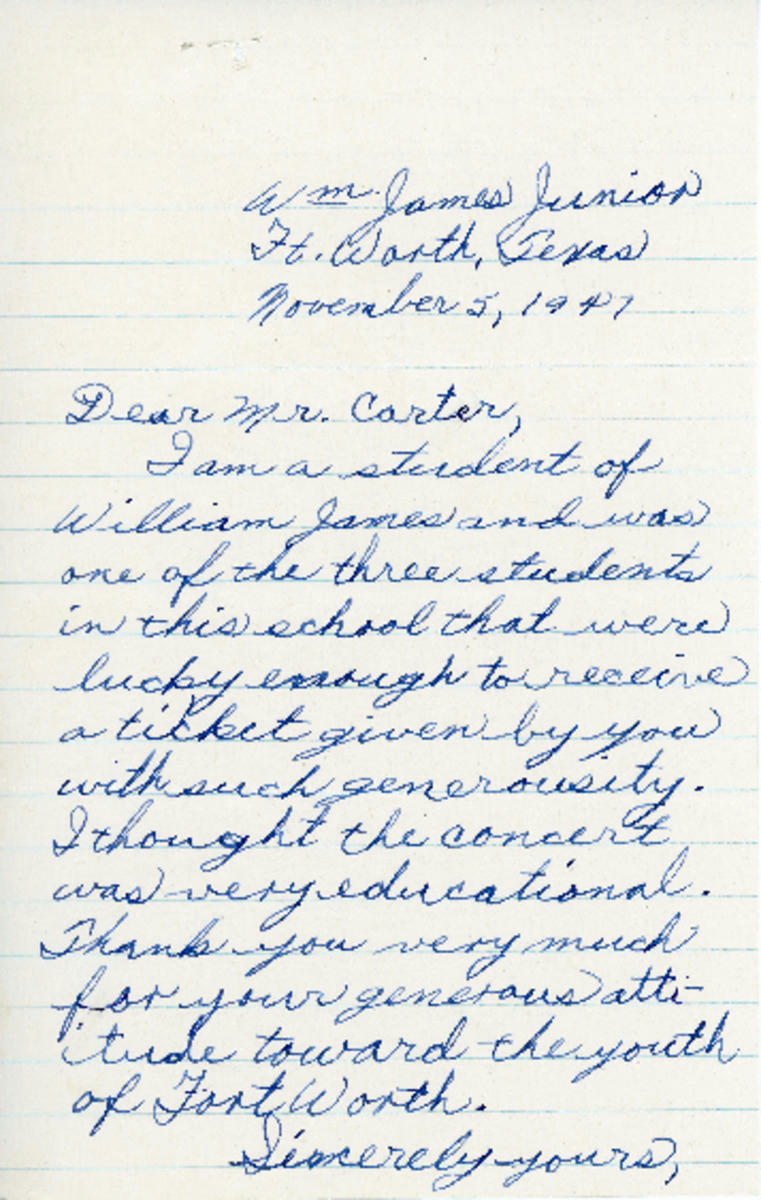 Wm. James Junior
Ft. Worth, Texas
November 5, 1947
Dear Mr. Carter,
I am a student of
William James and was
one of the three students
in this school that were
lucky enough to receive
a ticket given by you
with such generousity.
I thought the concert
was very educational.
Thank you very much
for your generous atti-
itude toward the youth
of Fort Worth.
Sincerely yours,